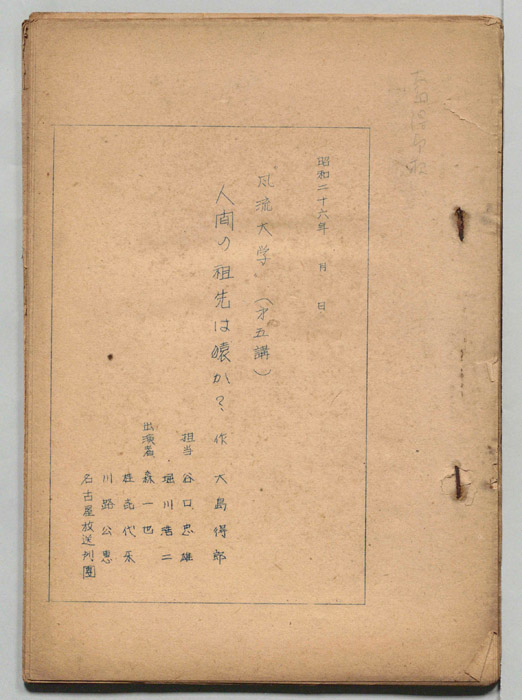 昭和二十六年 月 日
風流大学 (才五講)
人間の祖先は猿か?
作 大島得郎
担当 谷口忠雄
堀川浩二
出演者 森一也
桂喜代乐
川路公恵
名古屋放送列團